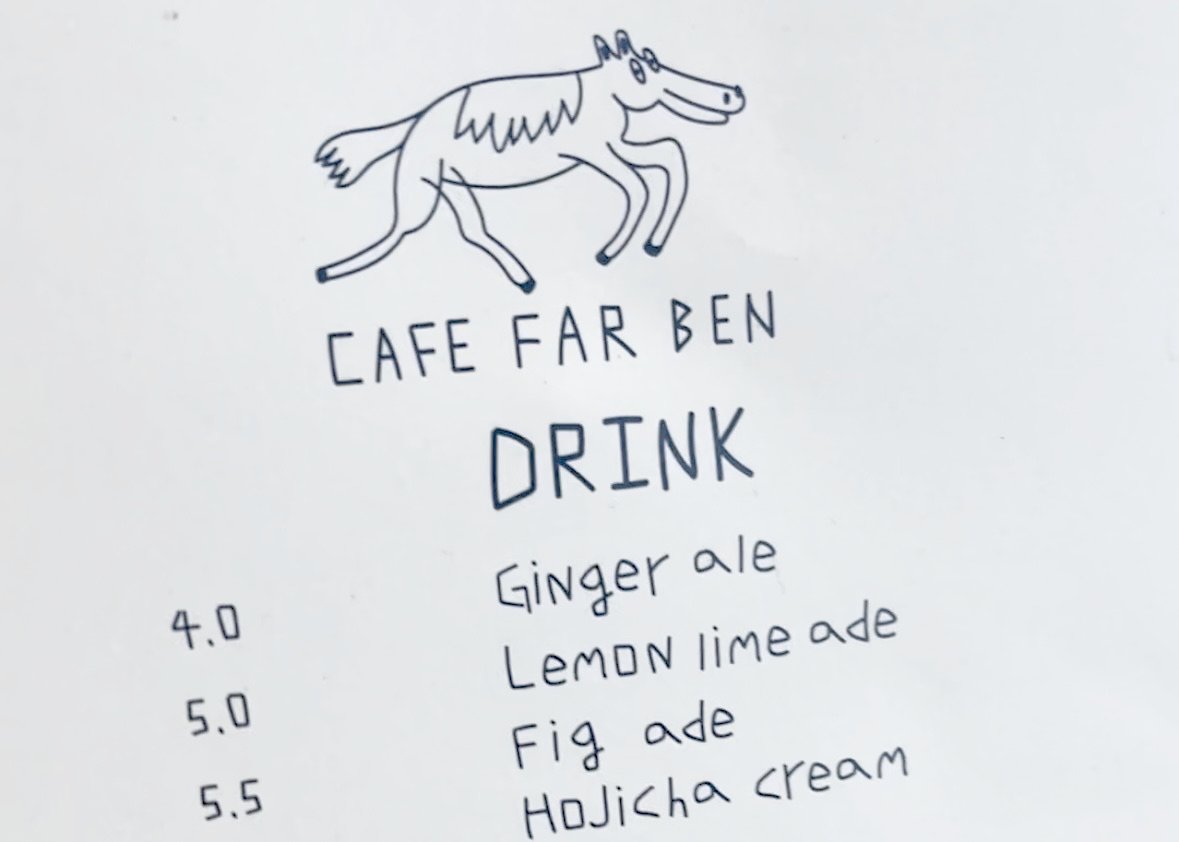 CAFE FAR BEN
DRINK
4.0 Ginger ale
5.0 Lemon lime ade
5.5 Fig ade
Hojicha cream